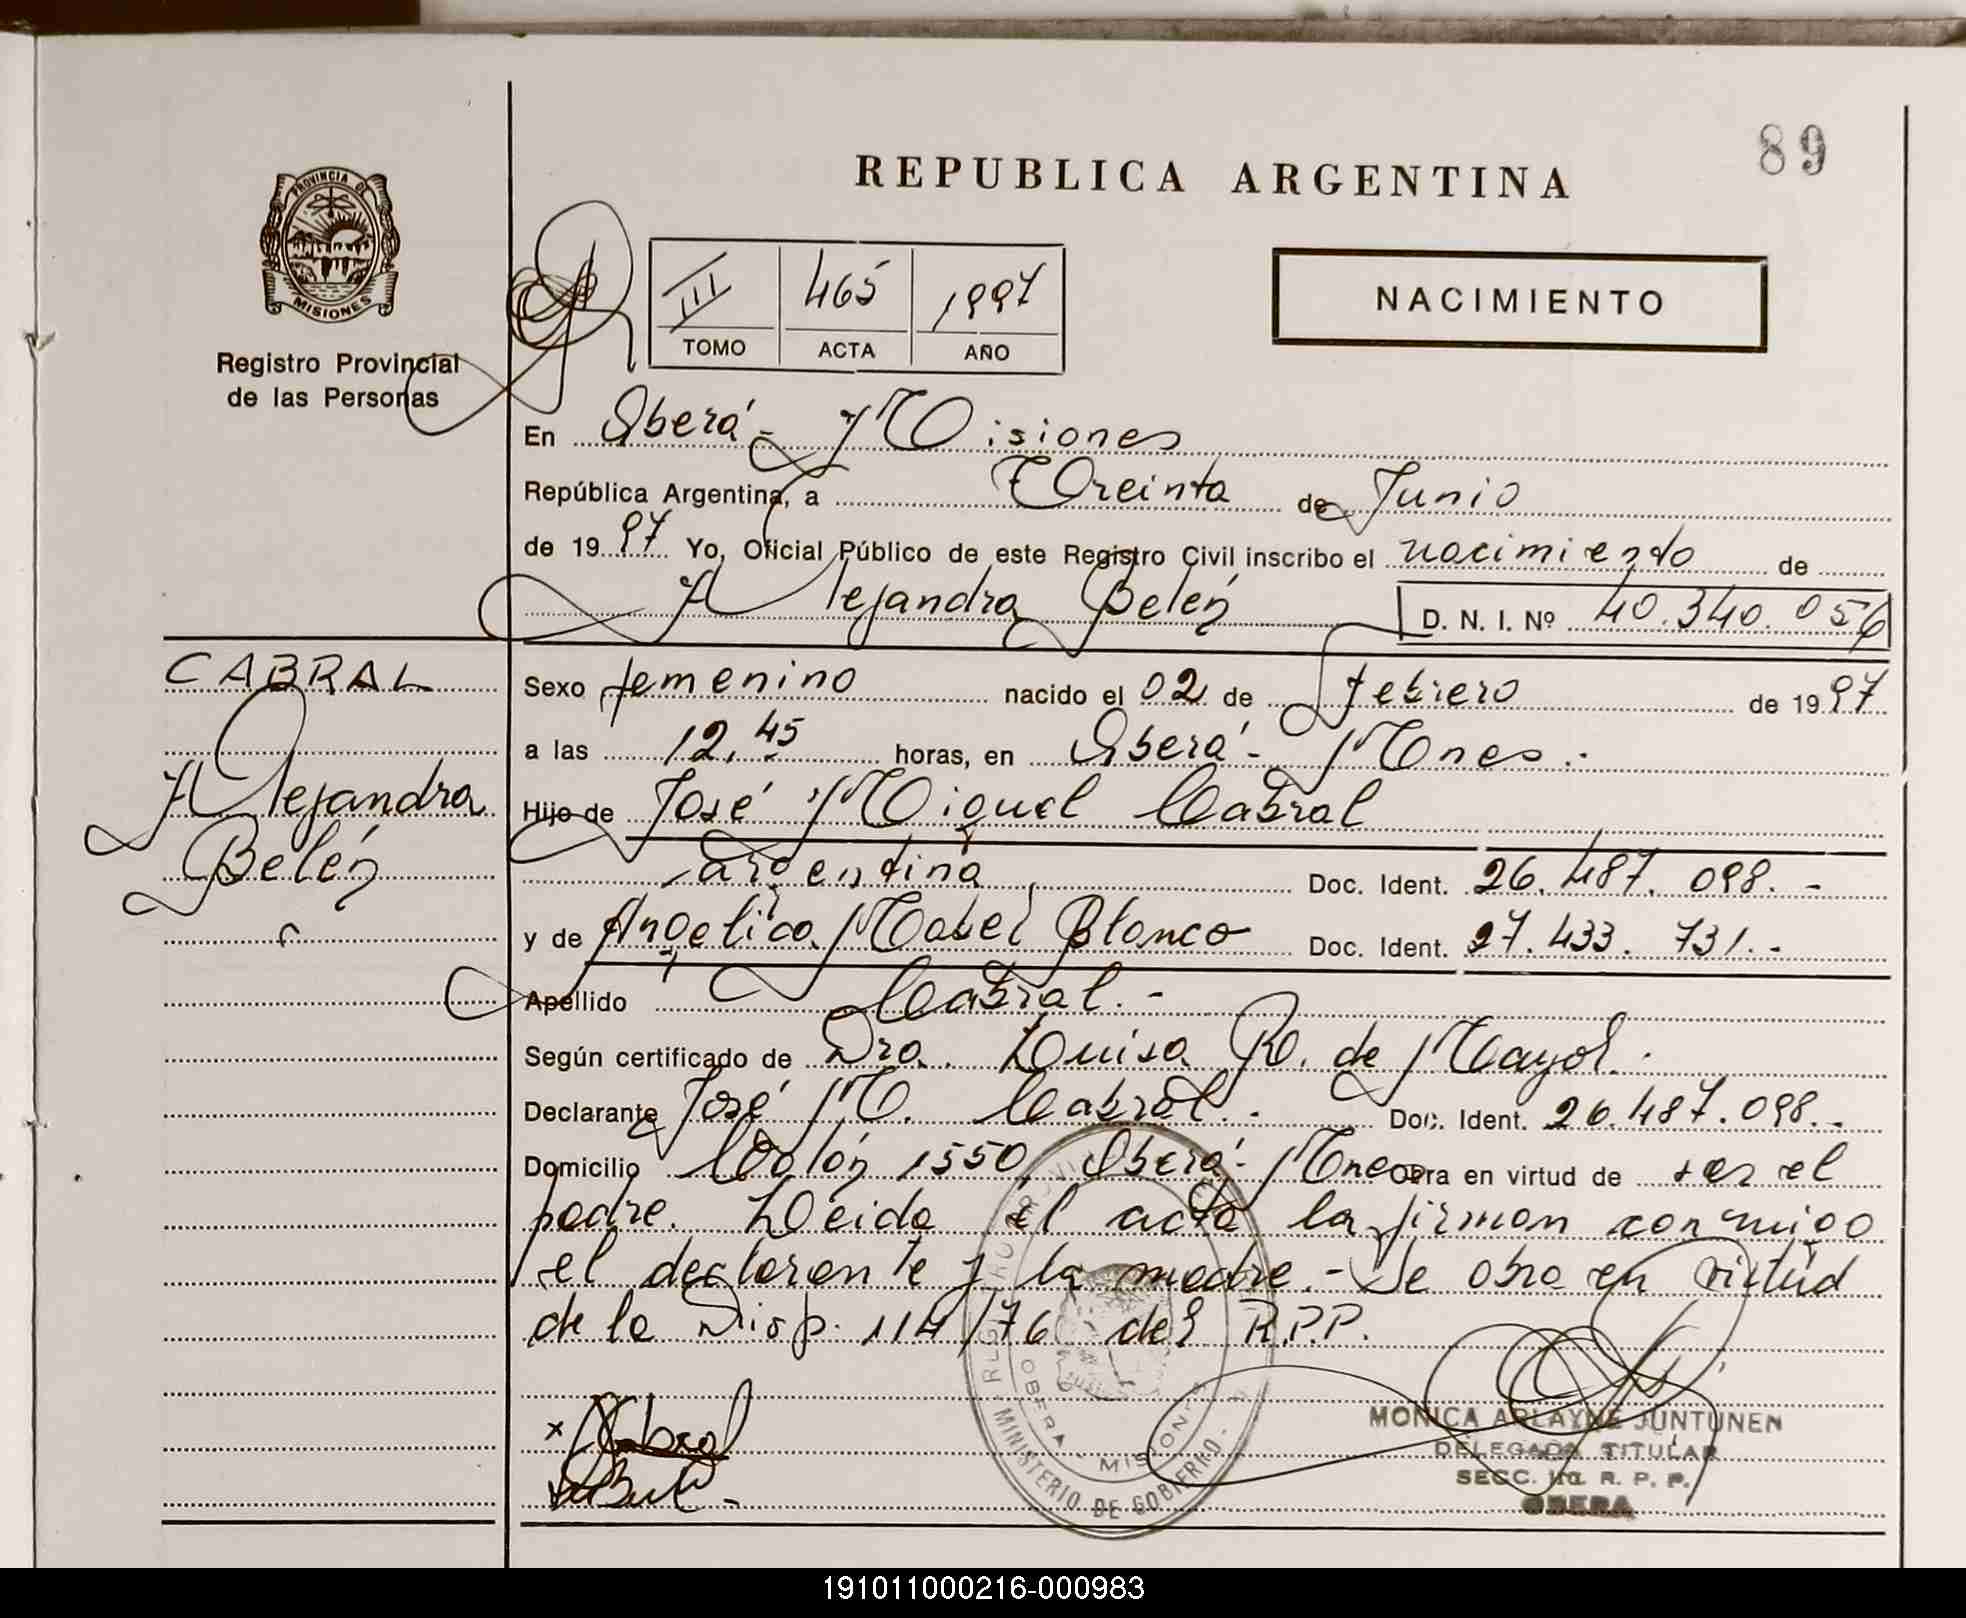 89
REPUBLICA ARGENTINA
PROVINCIA DE
MISIONES
Registro Provincial
de las Personas
III 465 1997
TOMO ACTA AÑO
NACIMIENTO
En Oberá - Misiones
República Argentina, a Treinta de Junio
de 1997 Yo, Oficial Público de este Registro Civil inscribo el nacimiento de
Alejandra Belén D. N. I. Nº 40.340.056
CABRAL
Alejandra
Belén
Sexo femenino nacido el 02 de Febrero de 1997
a las 12,45 horas, en Oberá - Mnes.-
Hijo de José Miguel Cabral
argentina Doc. Ident. 26.487.098.-
y de Angelica Mabel Blanco Doc. Ident. 27.433.731.-
Apellido Cabral.-
Según certificado de Dra. Luisa R. de Mayol.
Declarante José M. Cabral.- Doc. Ident. 26.487.098.-
Domicilio Colón 1550, Oberá - Mnes Obra en virtud de ser el
padre. Leida el acta la firman conmigo
el declarante y la madre.- Se obra en virtud
de la Disp. 114/76 del R.P.P.
x Cabral
MINISTERIO DE GOBIERNO -
OBERA - MISIONES
MONICA ARLAYNE JUNTUNEN
DELEGADA TITULAR
SECC. 1ra. R. P. P.
OBERA
191011000216-000983